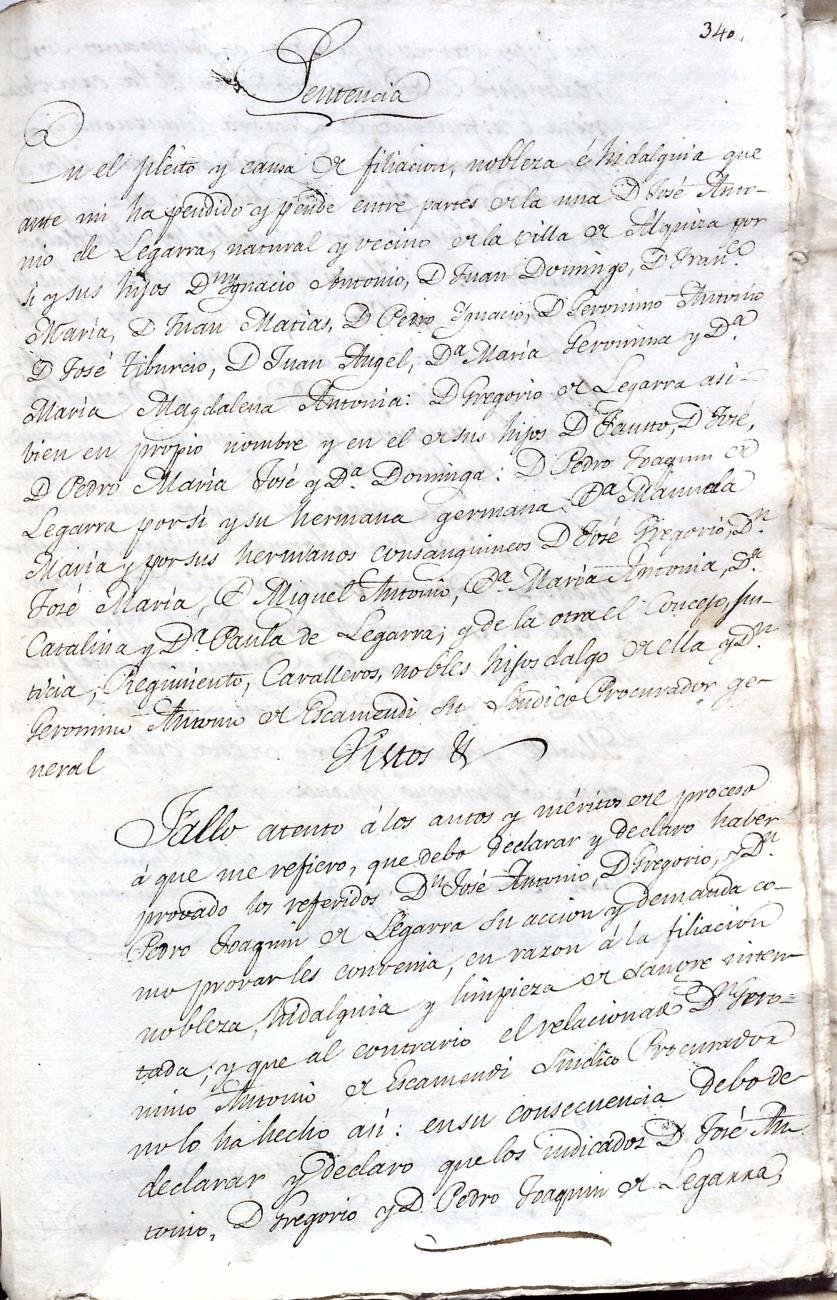 340.
Sentencia
En el pleito y causa de filiacion, nobleza é hidalguia que
ante mi ha pendido y pende entre partes de la una D José Anto-
nio de Legarra, natural y vecino de la villa de Alquiza por
si y sus hijos Dn Ygnacio Antonio, D Juan Domingo, D Franco
María, D Juan Matias, D Pedro Ygnacio, D Geronimo Antonio
D José Tiburcio, D Juan Angel, Da María Geronima y Da
María Magdalena Antonia: D Gregorio de Legarra asi-
bien en propio nombre y en el de sus hijos D Fausto, D José,
D Pedro María José y Da Dominga: D Pedro Joaquin de
Legarra por si y su hermana germana Da Manuela
María y por sus hermanos consanguineos D José Gregorio, Dn
José María, D Miguel Antonio, Da María Antonia, Da
Catalina y Da Paula de Legarra; y de la otra el Concejo, Jus-
ticia, Regimiento, Cavalleros, nobles hijos dalgo de ella y Dn
Geronimo Antonio de Escamendi su Sindico Procurador ge-
neral
Vistos &
Fallo atento á los autos y méritos del proceso
á que me refiero, que debo declarar y declaro haber
provado los referidos Dn José Antonio, D Gregorio, y Dn
Pedro Joaquin de Legarra su accion y demanda co-
mo provar les convenia, en razon á la filiacion
nobleza, hidalguia y limpieza de sangre inten-
tada; y que al contrario el relacionado Dn Gero-
nimo Antonio de Escamendi Sindico Procurador
no lo ha hecho asi: en su consecuencia debo de
declarar y declaro que los indicados D José An-
tonio, D Gregorio y D Pedro Joaquin de Legarra,